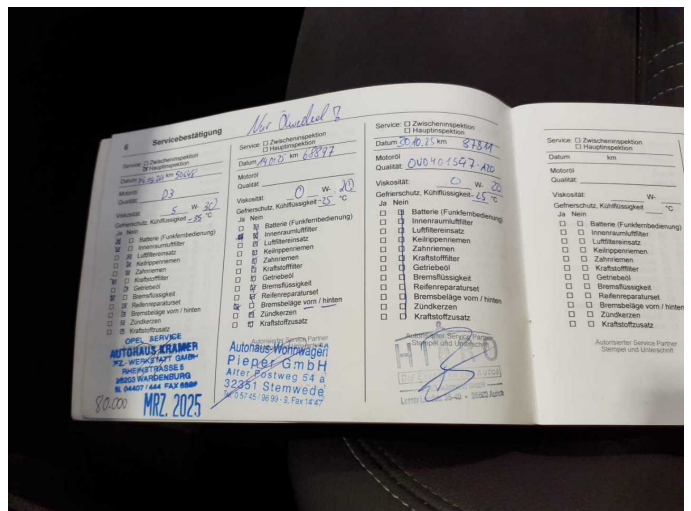 6 Servicebestätigung
Service: ☐ Zwischeninspektion
☒ Hauptinspektion
Datum km
Motoröl
Qualität: D3
Viskosität: 5 W-
Gefrierschutz, Kühlflüssigkeit -35 °C
Ja Nein
Batterie (Funkfernbedienung)
Innenraumluftfilter
Luftfiltereinsatz
Keilrippenriemen
Zahnriemen
Kraftstofffilter
Getriebeöl
Bremsflüssigkeit
Reifenreparaturset
Bremsbeläge vorn / hinten
Zündkerzen
Kraftstoffzusatz
OPEL SERVICE
AUTOHAUS KRAMER
KFZ.-WERKSTATT GMBH
RHEINSTRASSE 5
26203 WARDENBURG
80.000 MRZ. 2025
Nur
Service: ☐ Zwischeninspektion
☐ Hauptinspektion
Datum km
Motoröl
Qualität
Viskosität: 0 W- 20
Gefrierschutz, Kühlflüssigkeit -25 °C
Ja Nein
Batterie (Funkfernbedienung)
Innenraumluftfilter
Luftfiltereinsatz
Keilrippenriemen
Zahnriemen
Kraftstofffilter
Getriebeöl
Bremsflüssigkeit
Reifenreparaturset
Bremsbeläge vorn / hinten
Zündkerzen
Kraftstoffzusatz
Autorisierter Service Partner
Autohaus-Wohnwagen
Pieper GmbH
Alter Postweg 54 a
32351 Stemwede
Tel. 0 57 45 / 96 99 - 9, Fax 14 47
Service: ☐ Zwischeninspektion
☐ Hauptinspektion
Datum 20.10.25 km 87811
Motoröl
Qualität:
Viskosität: 0 W- 20
Gefrierschutz, Kühlflüssigkeit -25 °C
Ja Nein
Batterie (Funkfernbedienung)
Innenraumluftfilter
Luftfiltereinsatz
Keilrippenriemen
Zahnriemen
Kraftstofffilter
Getriebeöl
Bremsflüssigkeit
Reifenreparaturset
Bremsbeläge vorn / hinten
Zündkerzen
Kraftstoffzusatz
Autorisierter Service Partner
Stempel und Unterschrift
Service: ☐ Zwischeninspektion
☐ Hauptinspektion
Datum km
Motoröl
Qualität:
Viskosität: W-
Gefrierschutz, Kühlflüssigkeit °C
Ja Nein
Batterie (Funkfernbedienung)
Innenraumluftfilter
Luftfiltereinsatz
Keilrippenriemen
Zahnriemen
Kraftstofffilter
Getriebeöl
Bremsflüssigkeit
Reifenreparaturset
Bremsbeläge vorn / hinten
Zündkerzen
Kraftstoffzusatz
Autorisierter Service Partner
Stempel und Unterschrift